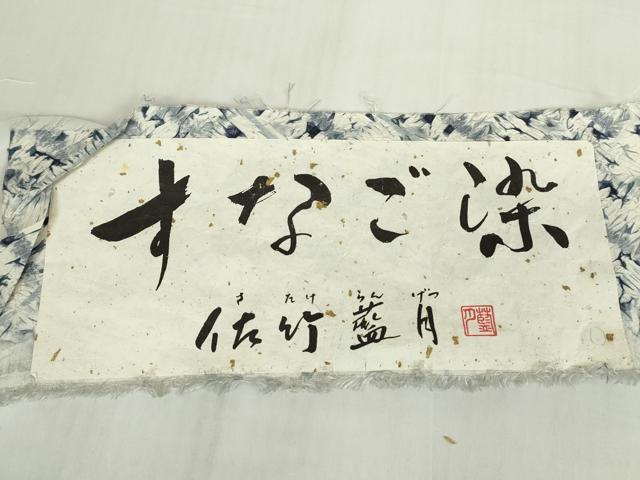 すなご染
さたけらんげつ
佐竹藍月
藍月